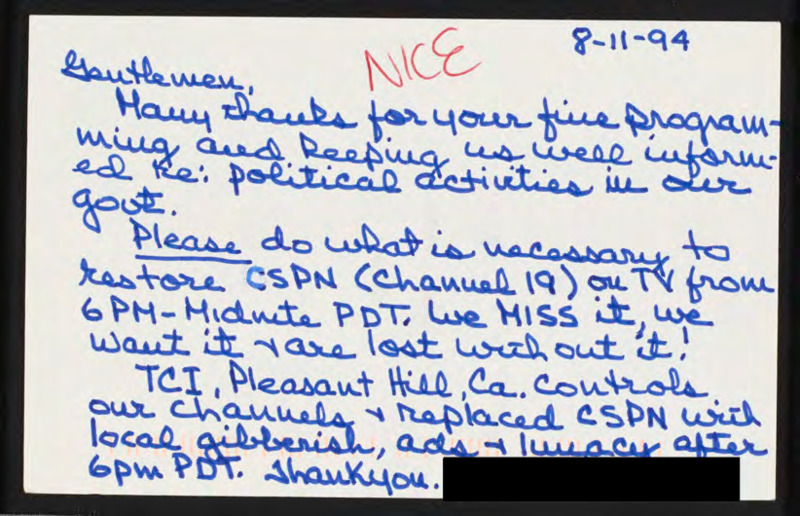 8-11-94
NICE
Gentlemen,
Many thanks for your fine program-
ming and keeping us well inform-
ed Re: political activities in our
govt.
Please do what is necessary to
restore CSPN (Channel 19) on TV from
6PM-Midnite PDT. We MISS it, we
want it & are lost without it!
TCI, Pleasant Hill, Ca. controls
our channels & replaced CSPN with
local gibberish, ads & lunacy after
6pm PDT. Thankyou.